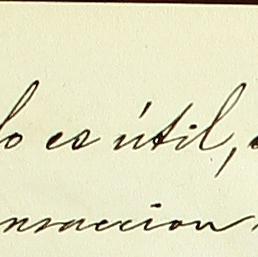 lo es útil,
nsaccion